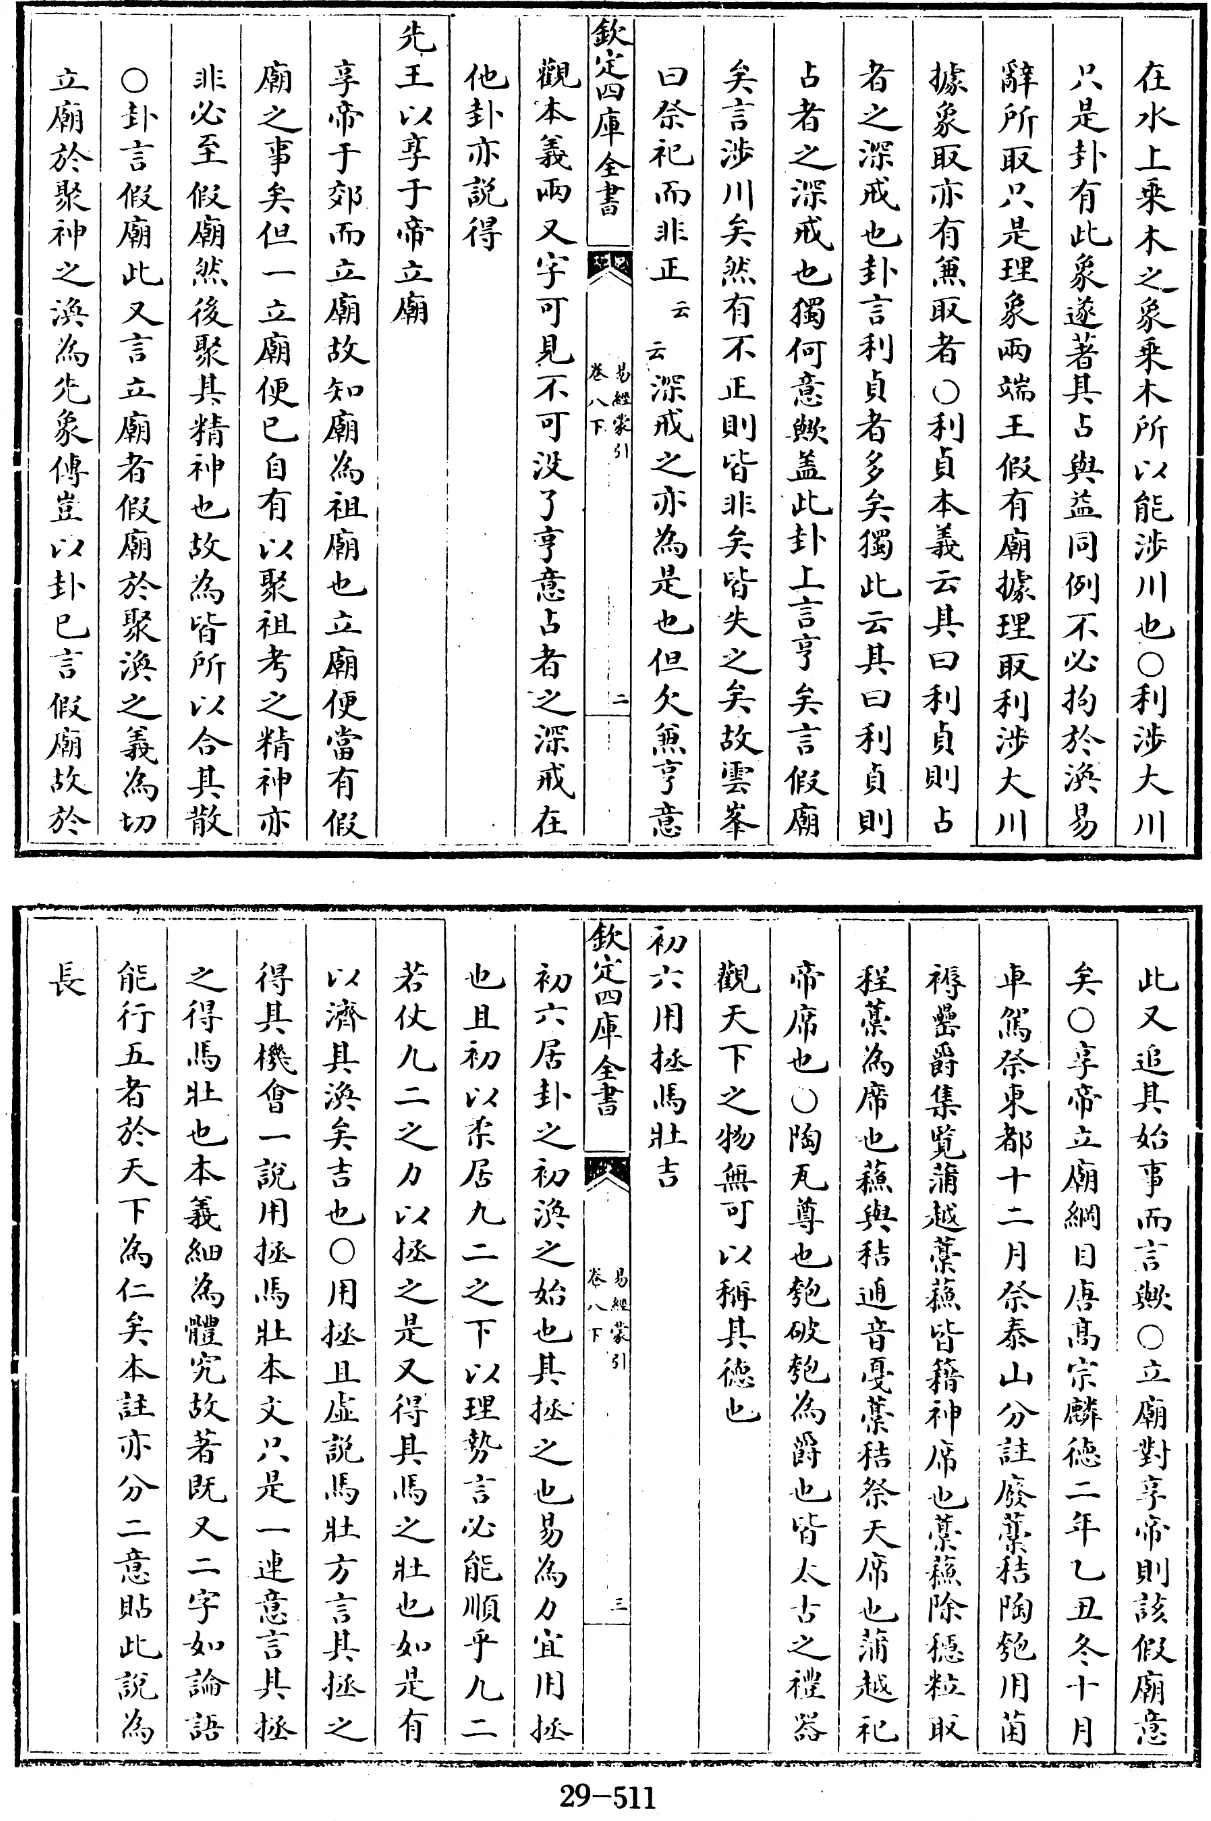 在水上乗木之象乗木所以能涉川也○利涉大川
只是卦有此象遂著其占與益同例不必拘於渙易
辭所取只是理象兩端王假有廟據理取利涉大川
據象取亦有兼取者○利貞本義云其曰利貞則占
者之深戒也卦言利貞者多矣獨此云其曰利貞則
占者之深戒也獨何意歟盖此卦上言亨矣言假廟
矣言涉川矣然有不正則皆非矣皆失之矣故雲峯
曰祭祀而非正云云深戒之亦為是也但欠兼亨意
欽定四庫全書
易經蒙引
卷八下
二
觀本義兩又字可見不可没了亨意占者之深戒在
他卦亦説得
先王以享于帝立廟
享帝于郊而立廟故知廟為祖廟也立廟便當有假
廟之事矣但一立廟便已自有以聚祖考之精神亦
非必至假廟然後聚其精神也故為皆所以合其散
○卦言假廟此又言立廟者假廟於聚渙之義為切
立廟於聚神之渙為先象傳豈以卦已言假廟故於
此又追其始事而言歟○立廟對享帝則該假廟意
矣○享帝立廟綱目唐髙宗麟德二年乙丑冬十月
車駕祭東都十二月祭泰山分註廢藁秸陶匏用茵
褥罍爵集覽蒲越藁蘓皆籍神席也藁蘓除穗粒取
稈藁為席也蘓與秸通音戞藁秸祭天席也蒲越祀
帝席也○陶瓦尊也匏破匏為爵也皆太古之禮器
觀天下之物無可以稱其德也
初六用拯馬壯吉
欽定四庫全書
易經蒙引
卷八下
三
初六居卦之初渙之始也其拯之也易為力宜用拯
也且初以柔居九二之下以理勢言必能順乎九二
若仗九二之力以拯之是又得其馬之壯也如是有
以濟其渙矣吉也○用拯且虛説馬壯方言其拯之
得其機會一說用拯馬壯本文只是一連意言其拯
之得馬壯也本義細為體究故著既又二字如論語
能行五者於天下為仁矣本註亦分二意貼此説為
長
29-511